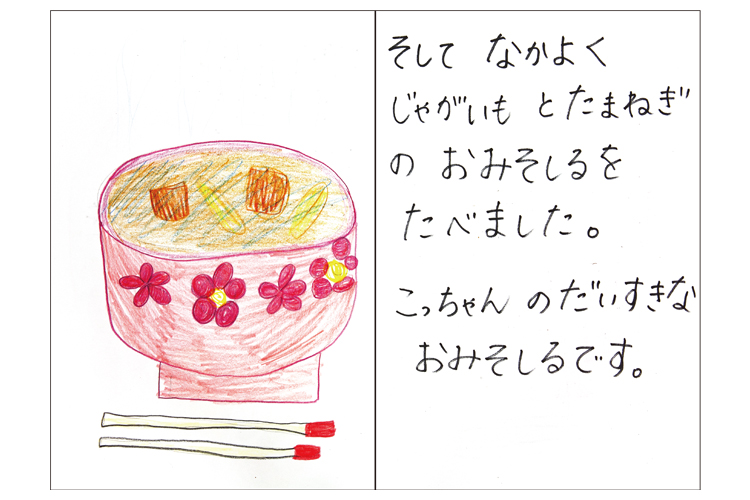 そして なかよく
じゃがいも と たまねぎ
の おみそしるを
たべました。
こっちゃん のだいすきな
おみそしるです。